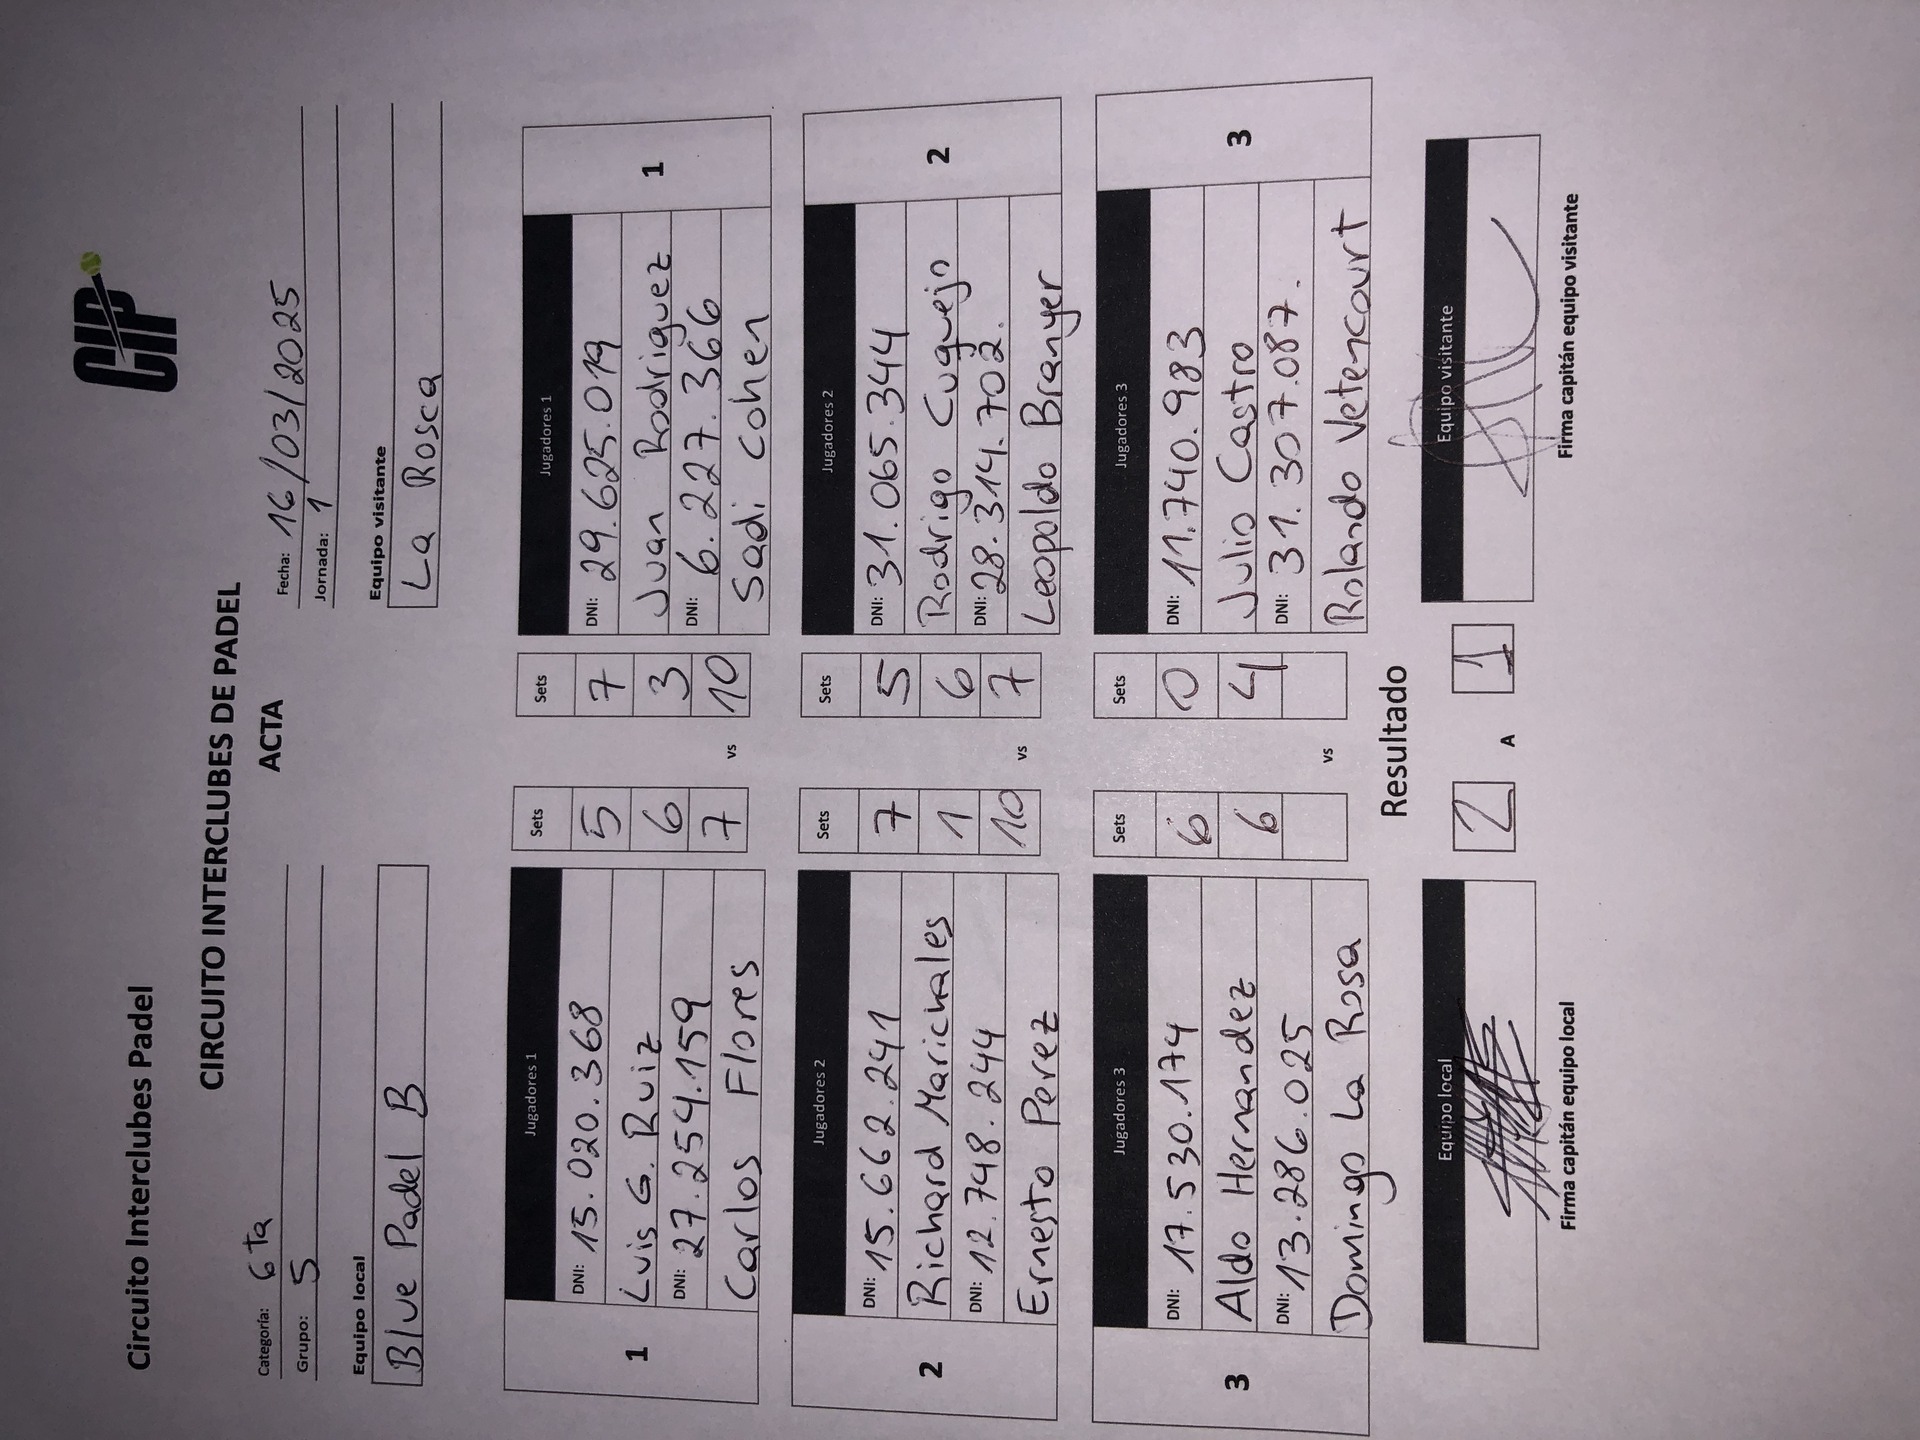 Circuito Interclubes Padel
CIP
CIRCUITO INTERCLUBES DE PADEL
ACTA
Categoría: 6ta
Fecha: 16/03/2025
Grupo: 5
Jornada: 1
Equipo local
Equipo visitante
Blue Padel B
La Rosca
Jugadores 1 Sets Sets Jugadores 1
DNI: 15.020.368 5 7 DNI: 29.625.019
Luis G. Ruiz 6 3 Juan Rodriguez
DNI: 27.254.159 7 10 DNI: 6.227.366
1 vs 1
Carlos Flores Sadi Cohen
Jugadores 2 Sets Sets Jugadores 2
DNI: 15.662.241 7 5 DNI: 31.065.344
Richard Marichales 1 6 Rodrigo Cuquejo
DNI: 12.748.244 10 7 DNI: 28.314.702.
2 vs 2
Ernesto Perez Leopoldo Branyer
Jugadores 3 Sets Sets Jugadores 3
DNI: 17.530.174 6 0 DNI: 11.740.983
Aldo Hernandez 6 4 Julio Castro
DNI: 13.286.025 DNI: 31.307.087.
3 vs 3
Domingo La Rosa Rolando Vetencourt
Resultado
Equipo local 2 A 1 Equipo visitante
Firma capitán equipo local Firma capitán equipo visitante